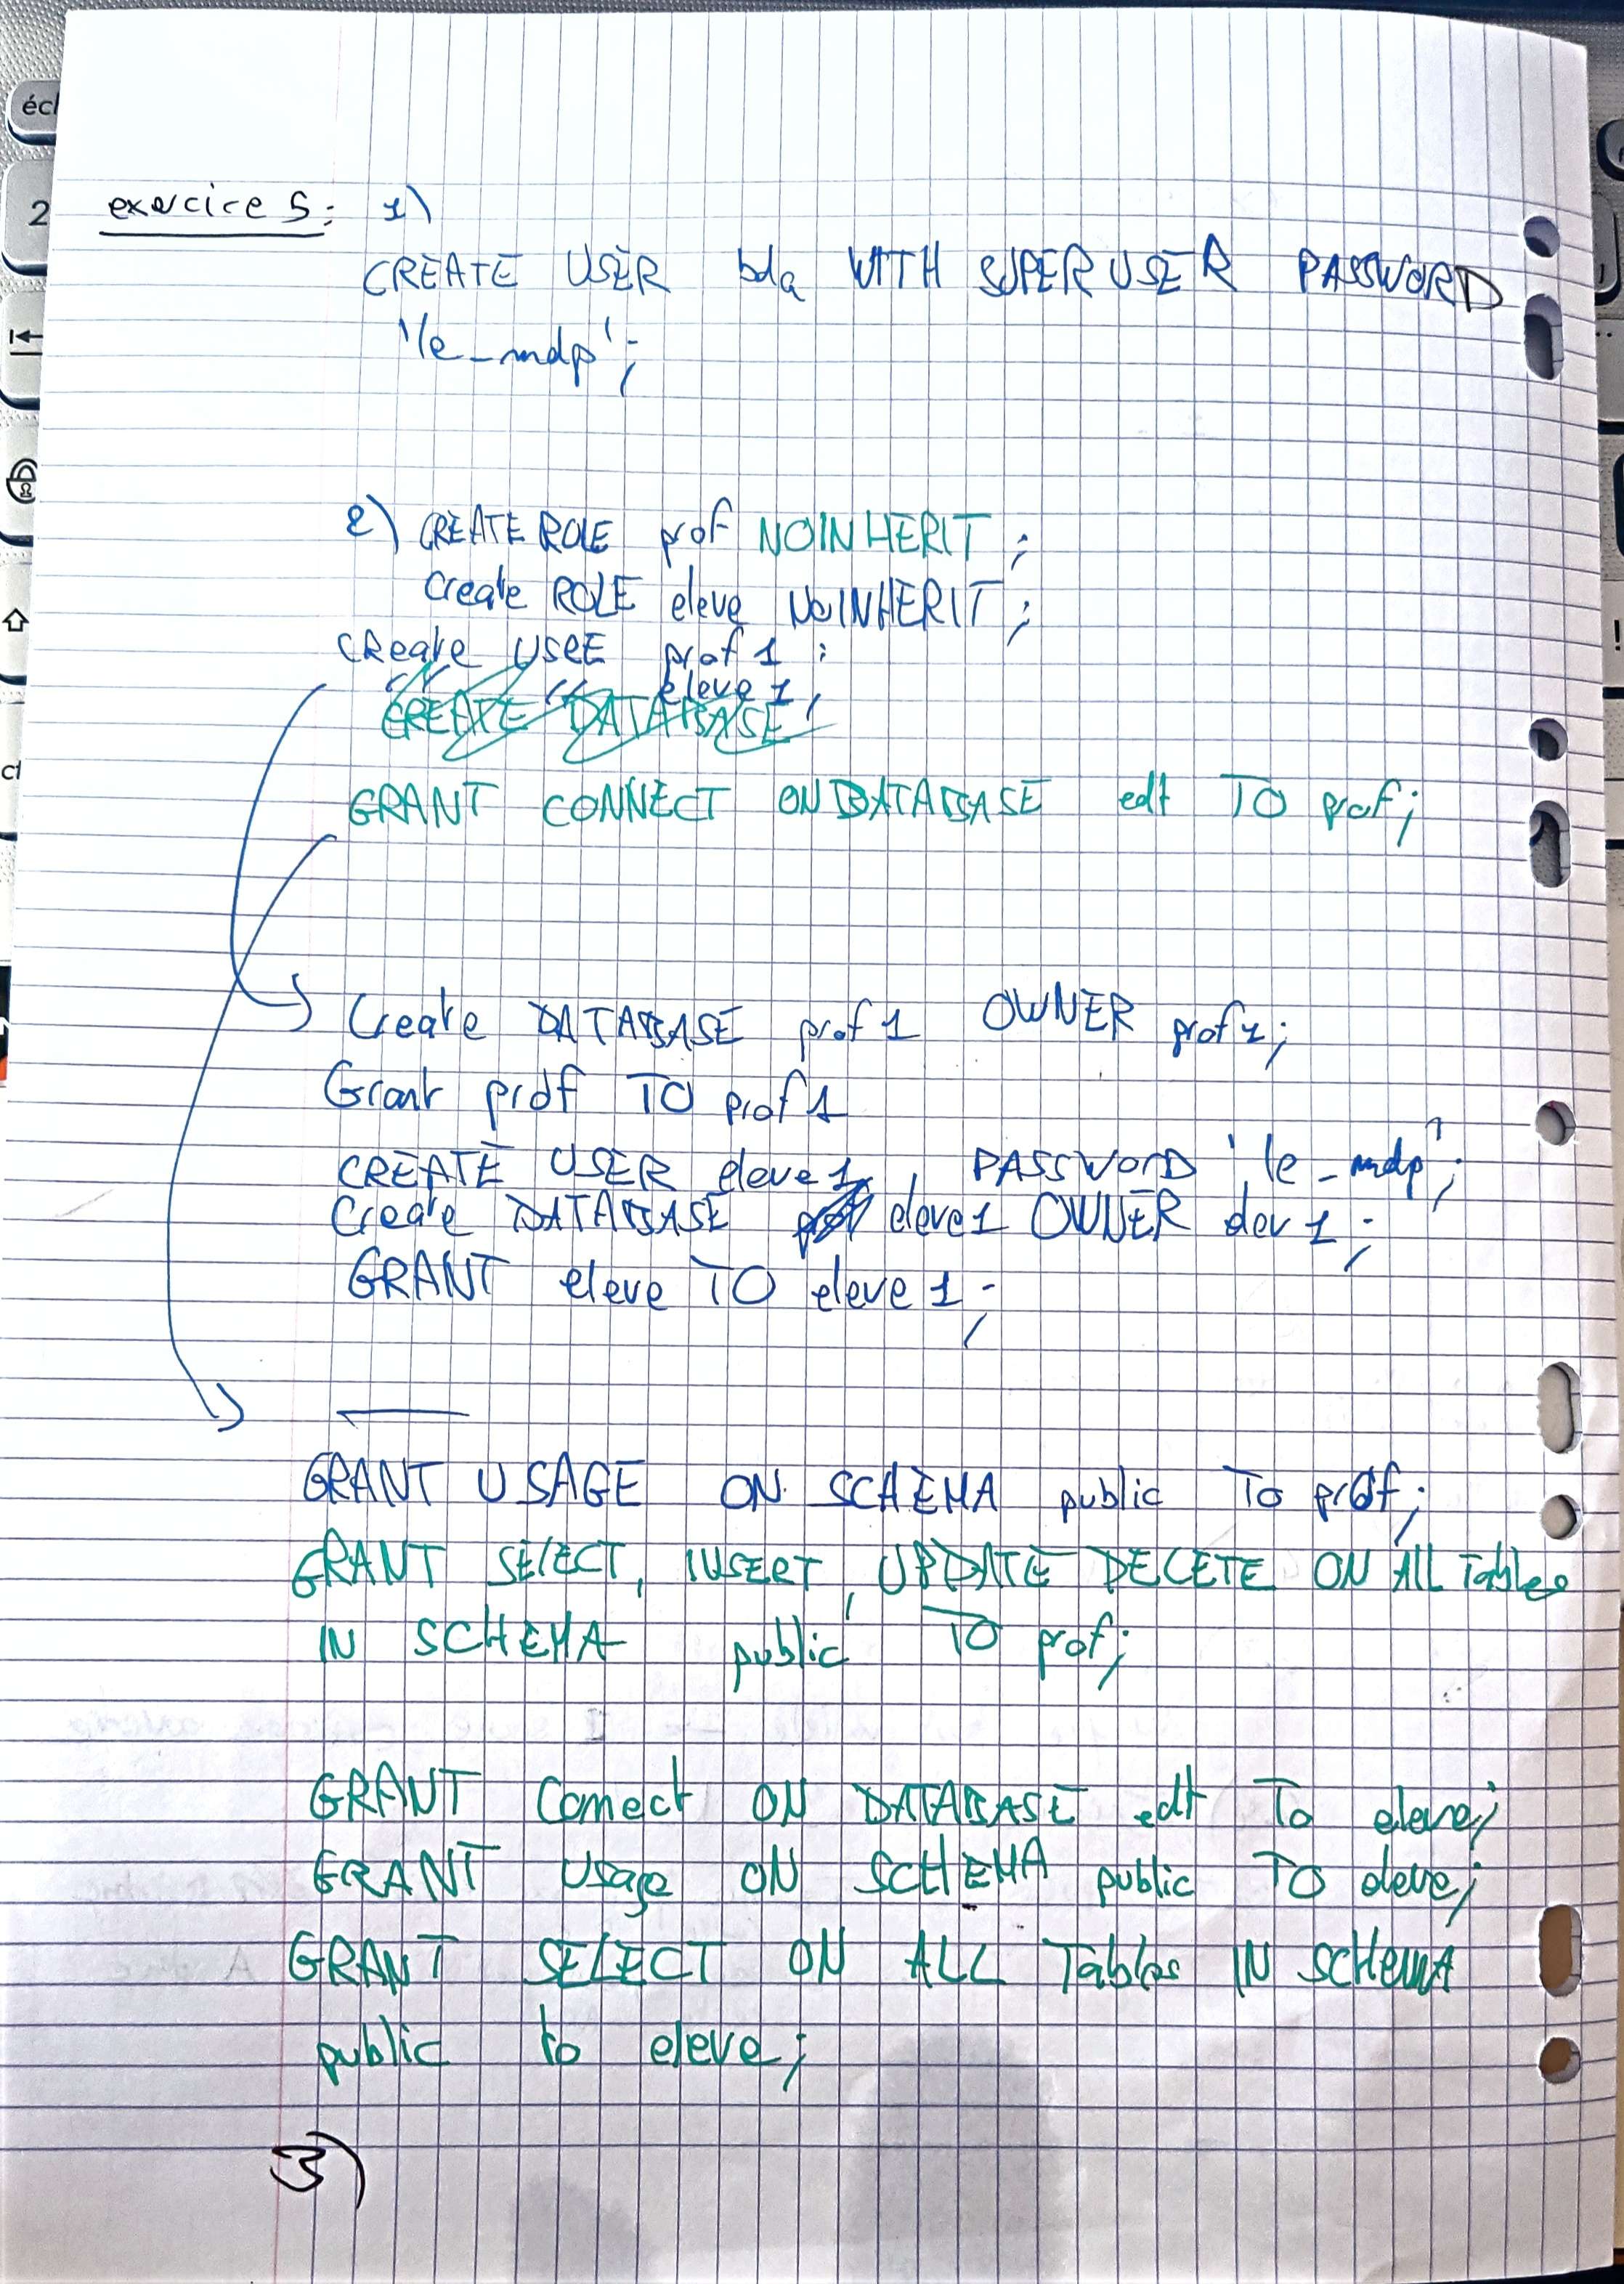 exercice 5: 1)
CREATE USER bda WITH SUPERUSER PASSWORD
'le_mdp';
2) CREATE ROLE prof NOINHERIT ;
Create ROLE eleve NOINHERIT ;
Create USER prof 1 ;
" " eleve 1,
CREATE DATABASE
GRANT CONNECT ON DATABASE edt TO prof;
Create DATABASE prof 1 OWNER prof 1;
Grant prof TO prof 1
CREATE USER eleve 1 PASSWORD 'le_mdp';
Create DATABASE eleve1 OWNER elev 1 ;
GRANT eleve TO eleve 1 ;
GRANT USAGE ON SCHEMA public To prof;
GRANT SELECT, INSERT, UPDATE DELETE ON All Tables
IN SCHEMA public TO prof;
GRANT Connect ON DATABASE edt To eleve;
GRANT Usage ON SCHEMA public TO eleve;
GRANT SELECT ON ALL Tables IN SCHemA
public to eleve;
3)